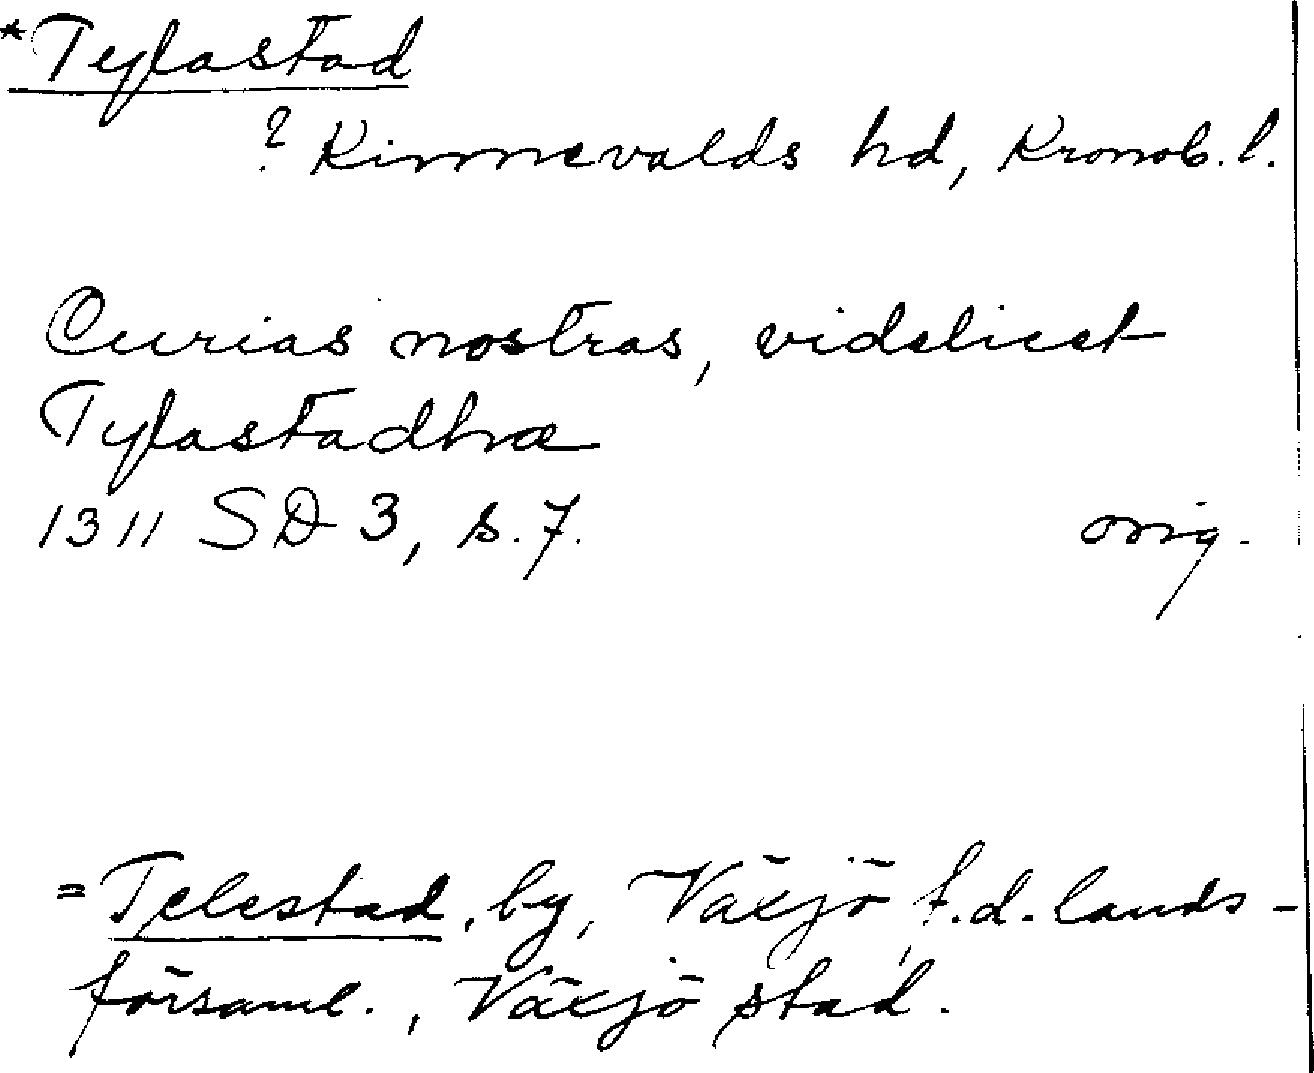 *Tyflastad
? Kinnevalds hd, Kronob. l.
Curias nostras, videlicet
Tyflastadhæ
1311 SD 3, s. 7.
orig.
= Telestad, by, Växjö f.d. lands-
församl., Växjö stad.